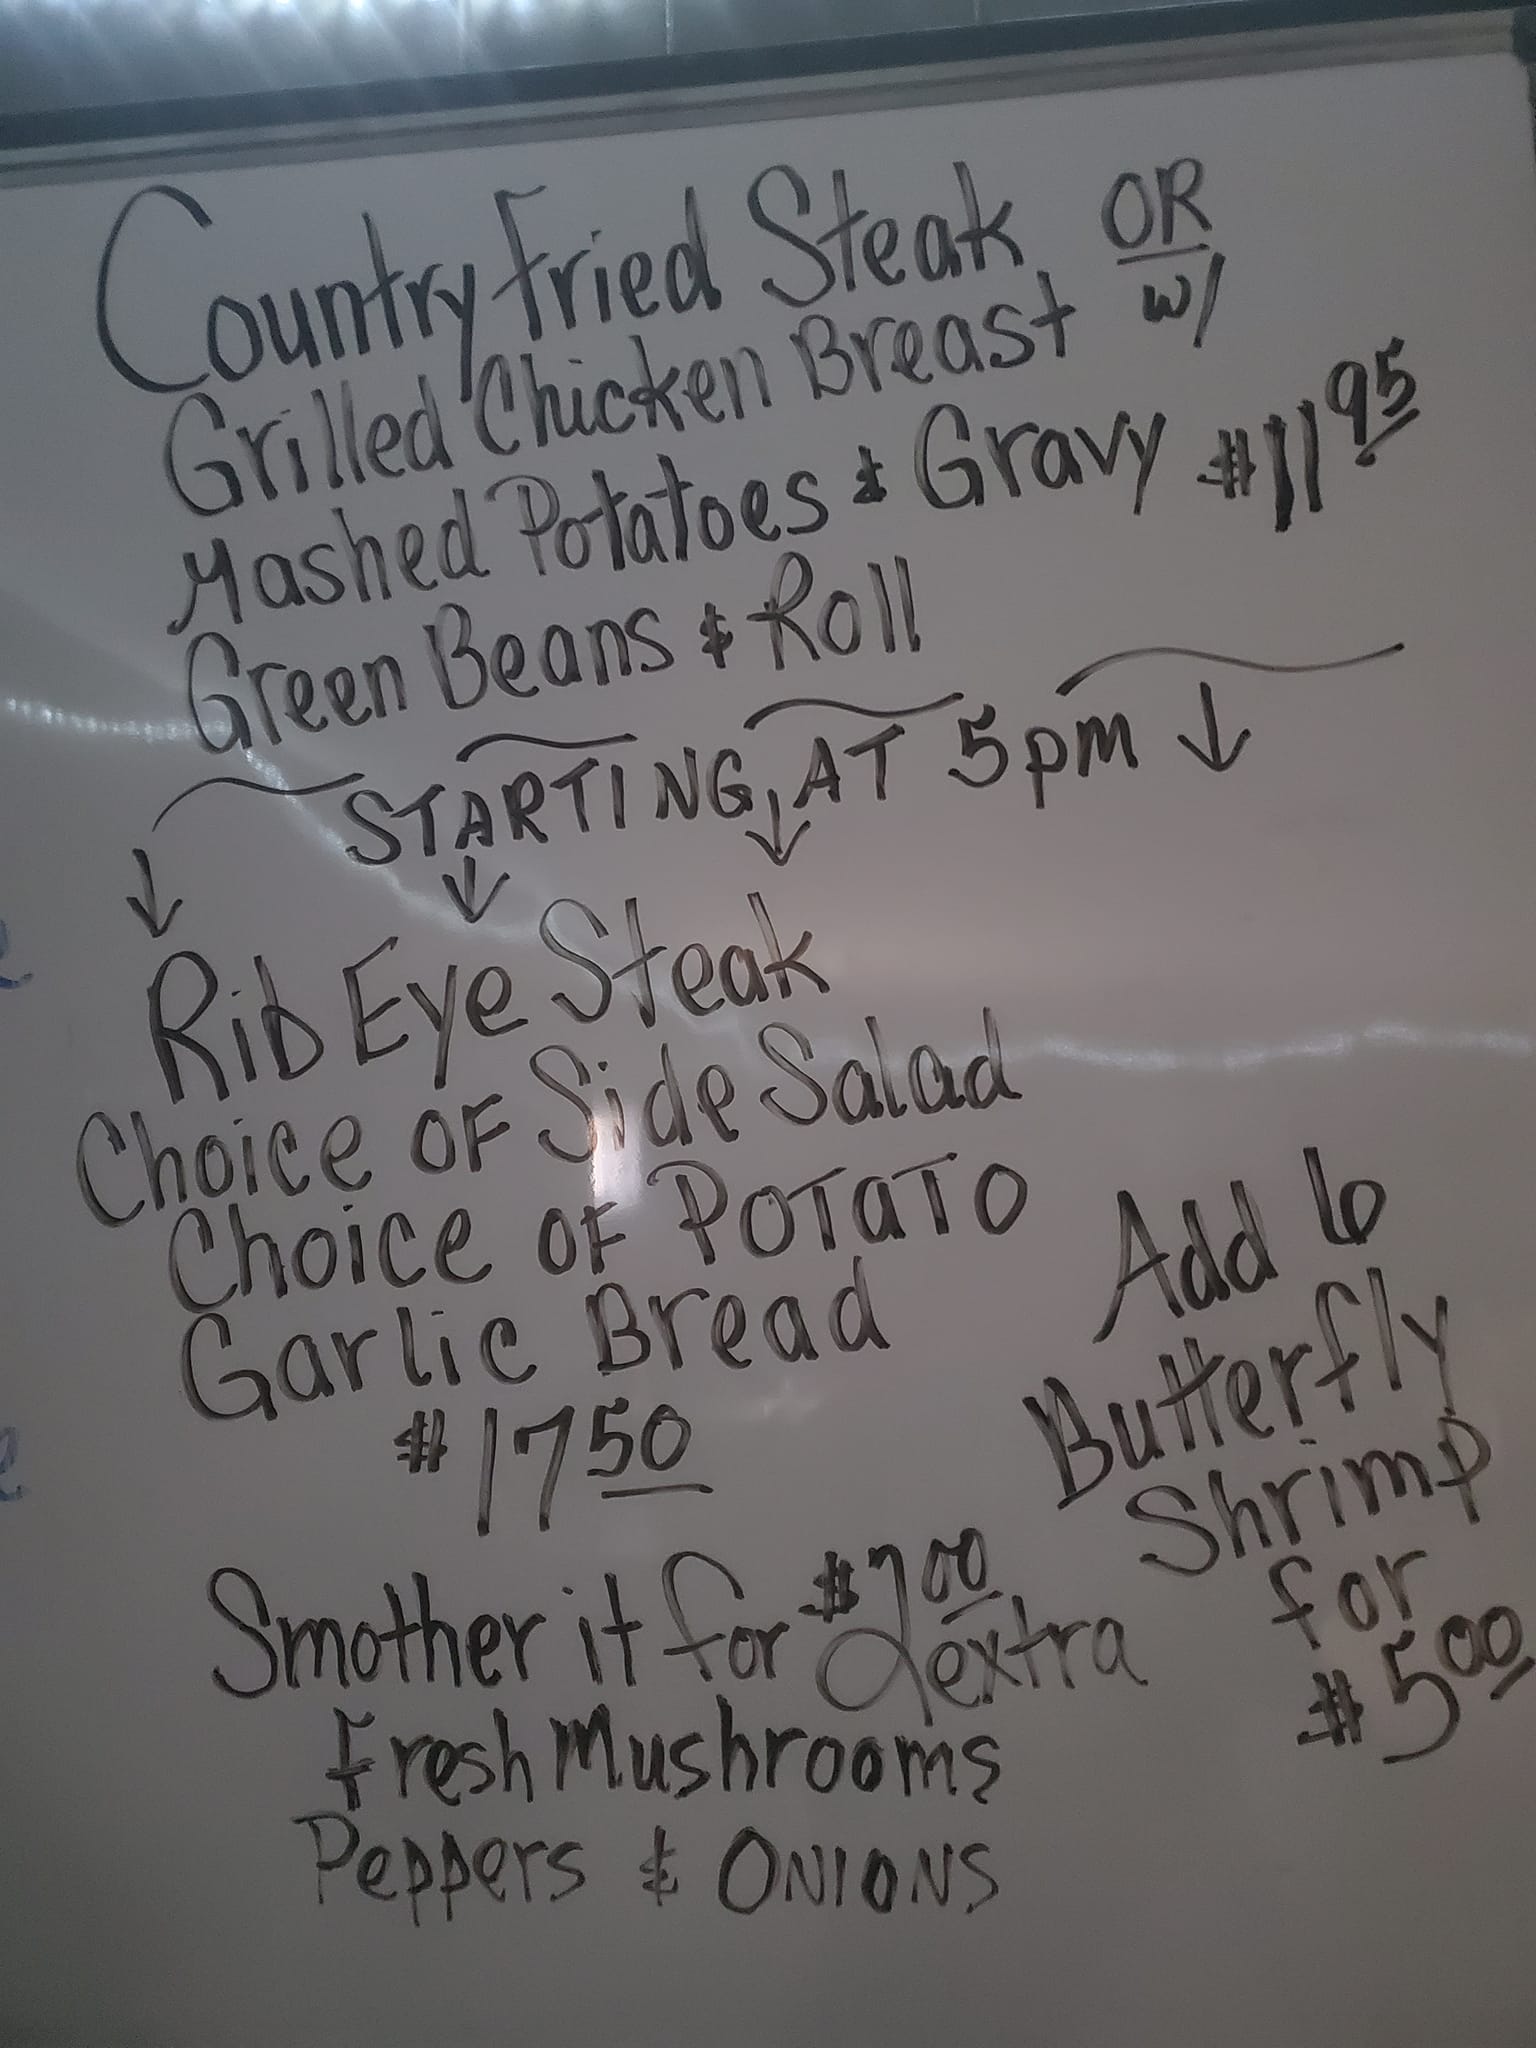 Country Fried Steak OR
Grilled Chicken Breast w/
Mashed Potatoes & Gravy $11.95
Green Beans & Roll
STARTING AT 5pm
Rib Eye Steak
Choice OF Side Salad
Choice OF POTATO
Garlic Bread
$17.50
Add 6
Butterfly
Shrimp
for
$5.00
Smother it for $2.00 extra
Fresh Mushrooms
Peppers & ONIONS